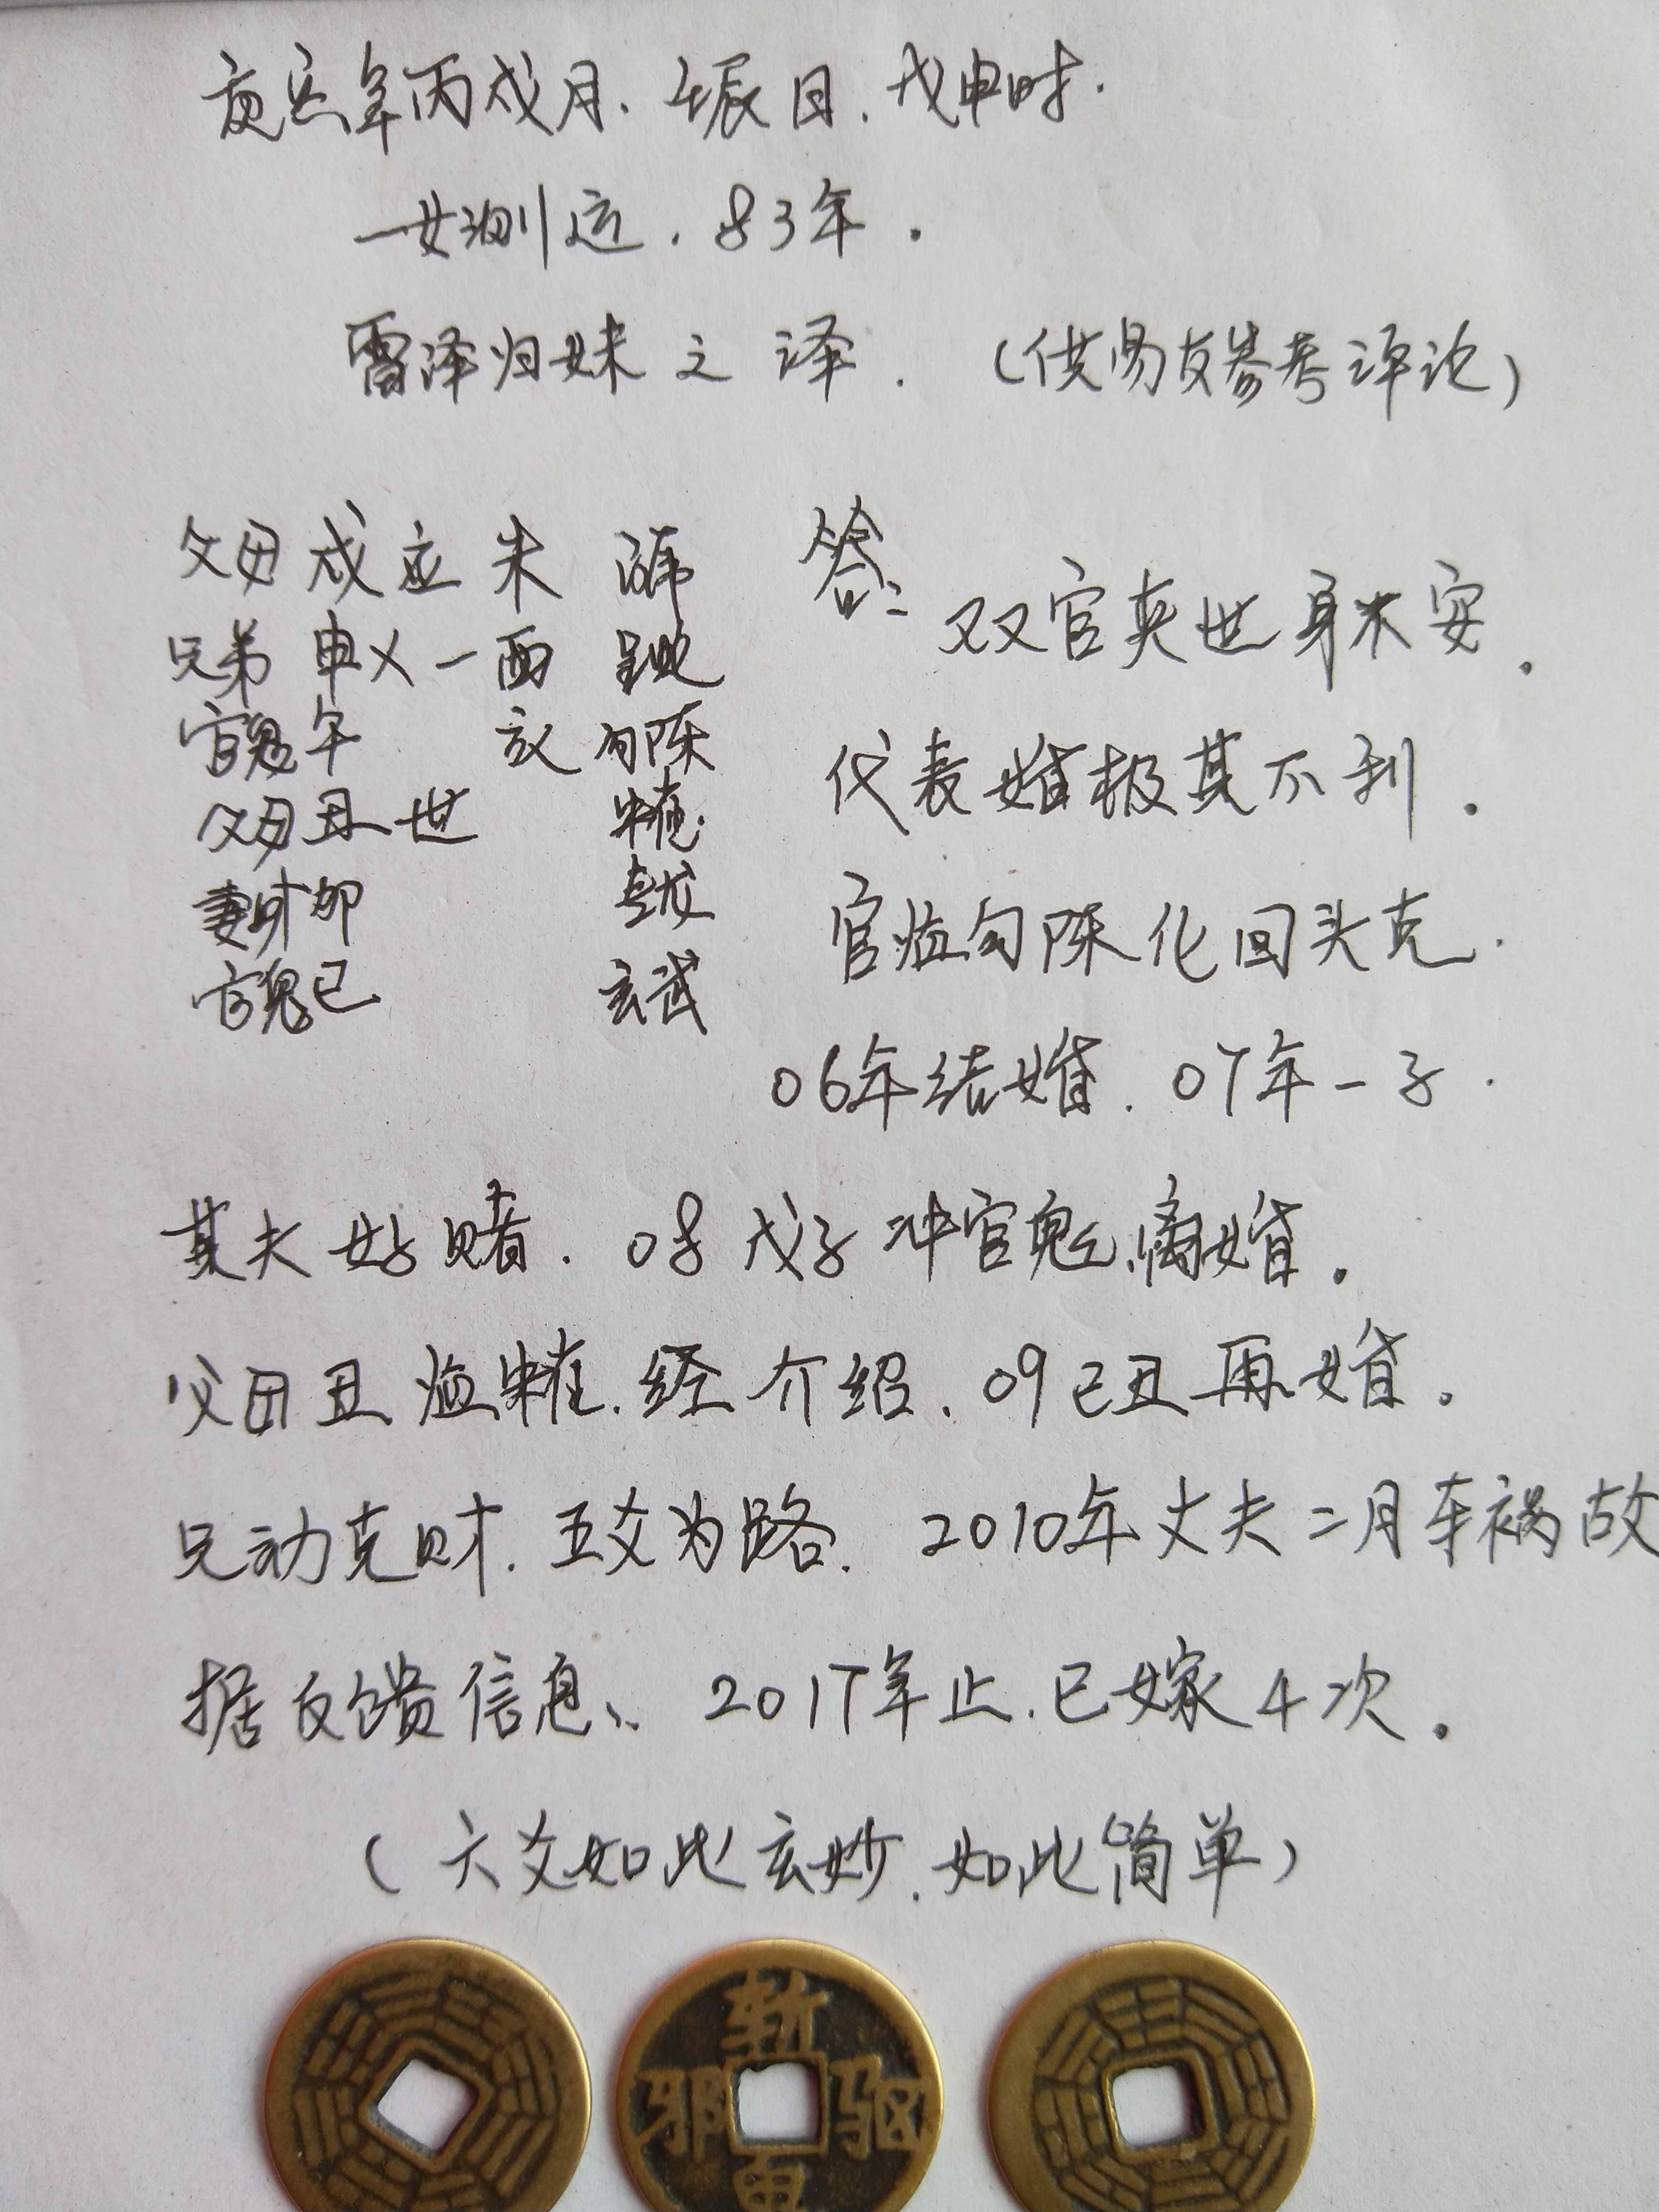 庚寅年丙戌月.壬辰日.戊申时.
一女测运.83年.
雷泽归妹之 泽.(供易友参考评论)
父母戌应未
兄弟申×一酉
官鬼午 亥 勾陈
父母丑一世 朱雀
妻财卯 青龙
官鬼巳 玄武
答:双官夹世身不安.
代表婚极其不利.
官临勾陈化回头克.
06年结婚.07年一子.
其夫好赌.08戊子冲官鬼,离婚.
父母丑临朱雀.经介绍.09己丑再婚.
兄动克财.五爻为路.2010年丈夫二月车祸故
据反馈信息、2017年止.已嫁4次.
(六爻如此玄妙.如此简单)
斩
邪 驱
鬼